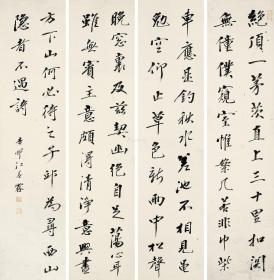 絕頂一茅茨直上三十里扣關
無僮僕窺室惟案几若非巾柴
車應是釣秋水差池不相見黽
勉空仰止草色新雨中松聲
晚窗裏及茲契幽絕自足蕩心耳
雖無賓主意頗得清淨意興盡
方下山何必待之子邱為尋西山
隱者不遇詩